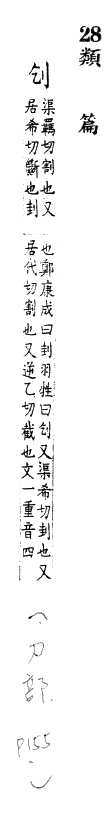 28類篇
刉
渠羈切割也又
居希切斷也刲
也鄭康成曰刲羽牲曰刉又渠希切刲也又
居代切割也又逆乙切截也文一重音四
(刀部. P155.)